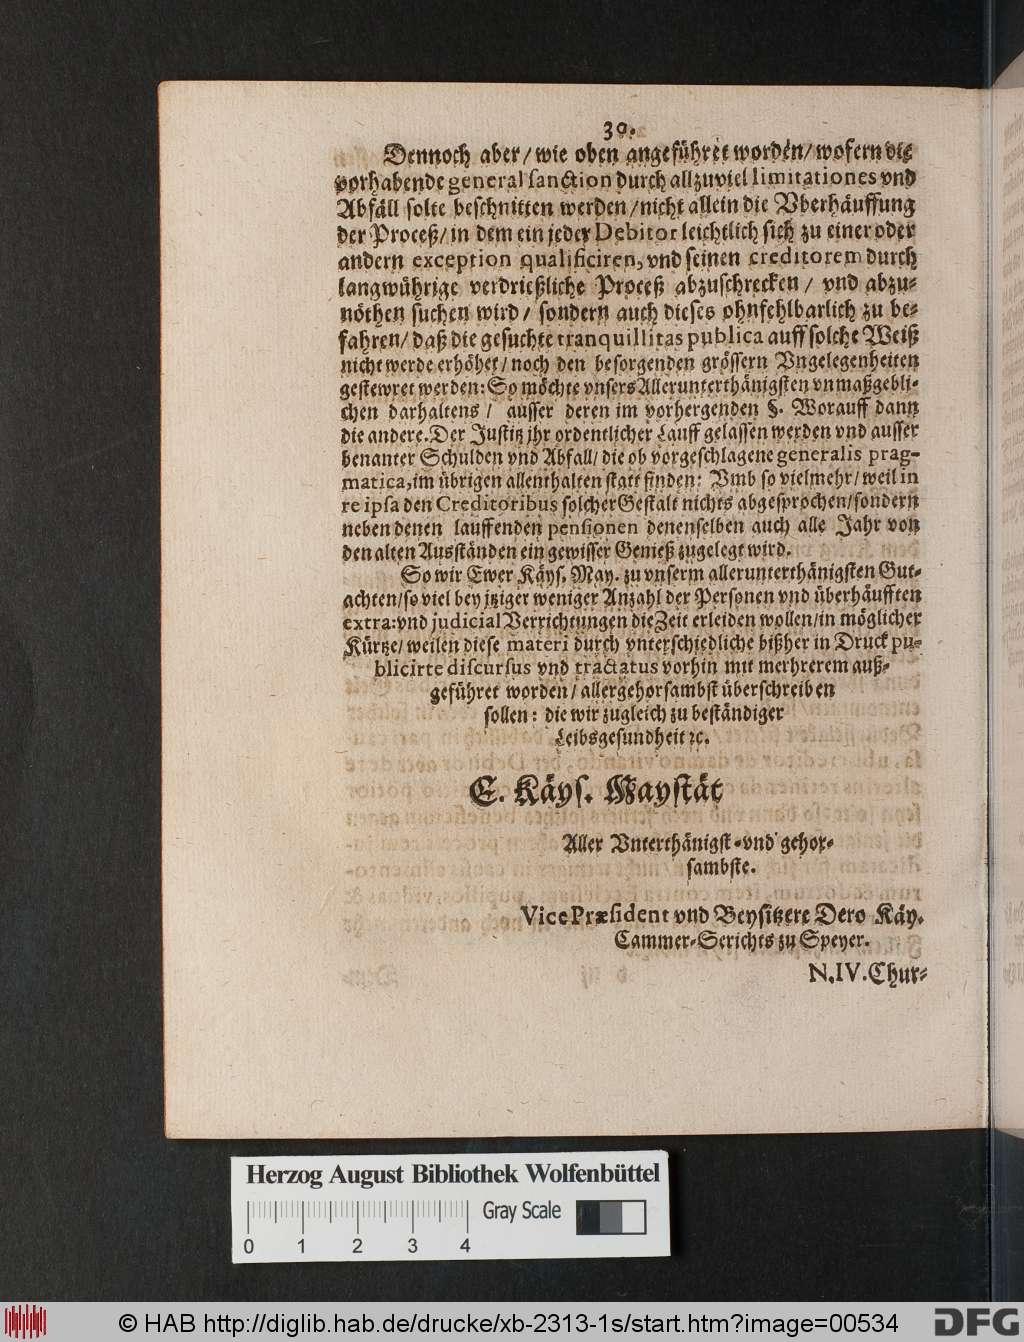 30.
Dennoch aber/ wie oben angeführet worden/ wofern die
vorhabende general sanction durch allzuviel limitationes vnd
Abfäll solte beschnitten werden/ nicht allein die Vberhäuffung
der Proceß/ in dem ein jeder Debitor leichtlich sich zu einer oder
andern exception qualificiren, vnd seinen creditorem durch
langwührige verdrießliche Proceß abzuschrecken/ vnd abzu-
nöthen suchen wird/ sondern auch dieses ohnfehlbarlich zu be-
fahren/ daß die gesuchte tranquillitas publica auff solche Weiß
nicht werde erhöhet/ noch den besorgenden grössern Vngelegenheiten
gestewret werden: So möchte vnsers Allerunterthänigsten vnmaßgebli-
chen darhaltens/ ausser deren im vorhergenden §. Worauff dann
die andere. Der Justitz jhr ordentlicher Lauff gelassen werden vnd ausser
benanter Schulden vnd Abfall/ die ob vorgeschlagene generalis prag-
matica, im übrigen allenthalten statt finden: Vmb so vielmehr/ weil in
re ipsa den Creditoribus solcher Gestalt nichts abgesprochen/ sondern
neben denen lauffenden pensionen denenselben auch alle Jahr von
den alten Ausständen ein gewisser Genieß zugelegt wird.
So wir Ewer Käys. May. zu vnserm allerunterthänigsten Gut-
achten/ so viel bey jtziger weniger Anzahl der Personen vnd überhäufften
extra: vnd judicial Verrichtungen die Zeit erleiden wollen/ in möglicher
Kürtze/ weilen diese materi durch vnterschiedliche bißher in Druck pu-
blicirte discursus vnd tractatus vorhin mit merhrerem auß-
geführet worden/ allergehorsambst überschreiben
sollen: die wir zugleich zu beständiger
Leibsgesundheit ꝛc.
E. Käys. Maystät
Aller Vnterthänigst-vnd gehor-
sambste.
Vice Præsident vnd Beysitzere Dero Käy.
Cammer-Gerichts zu Speyer.
N. IV. Chur-
Herzog August Bibliothek Wolfenbüttel
Gray Scale
0 1 2 3 4
© HAB http://diglib.hab.de/drucke/xb-2313-1s/start.htm?image=00534
DFG